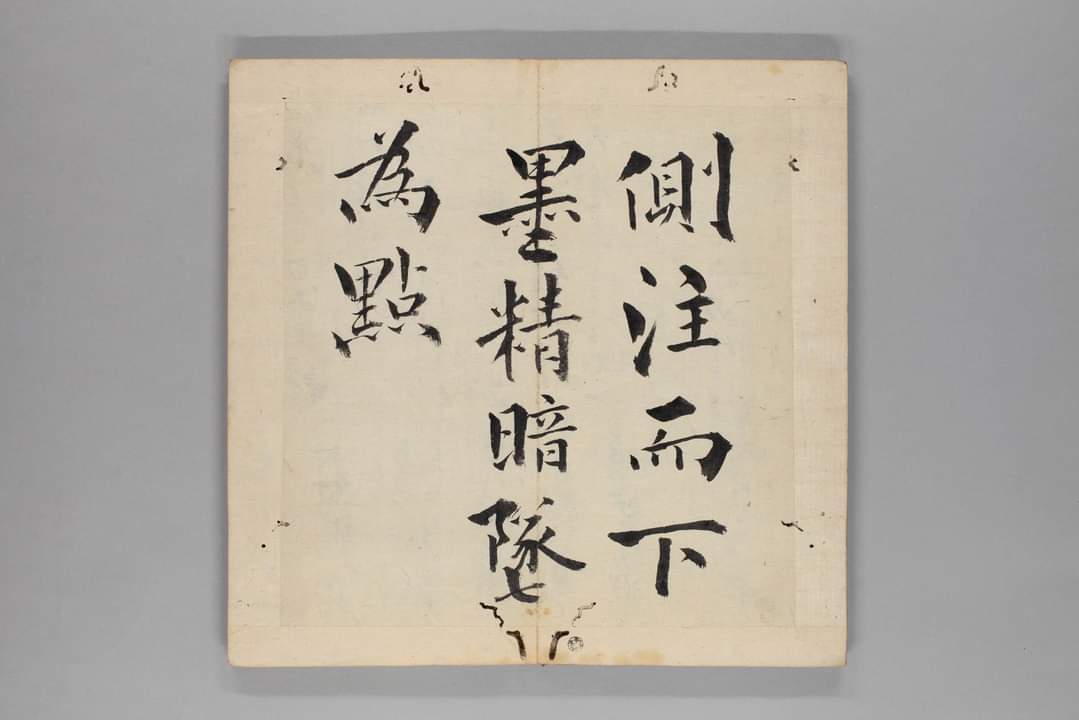 側注而下
墨精暗墜
為點